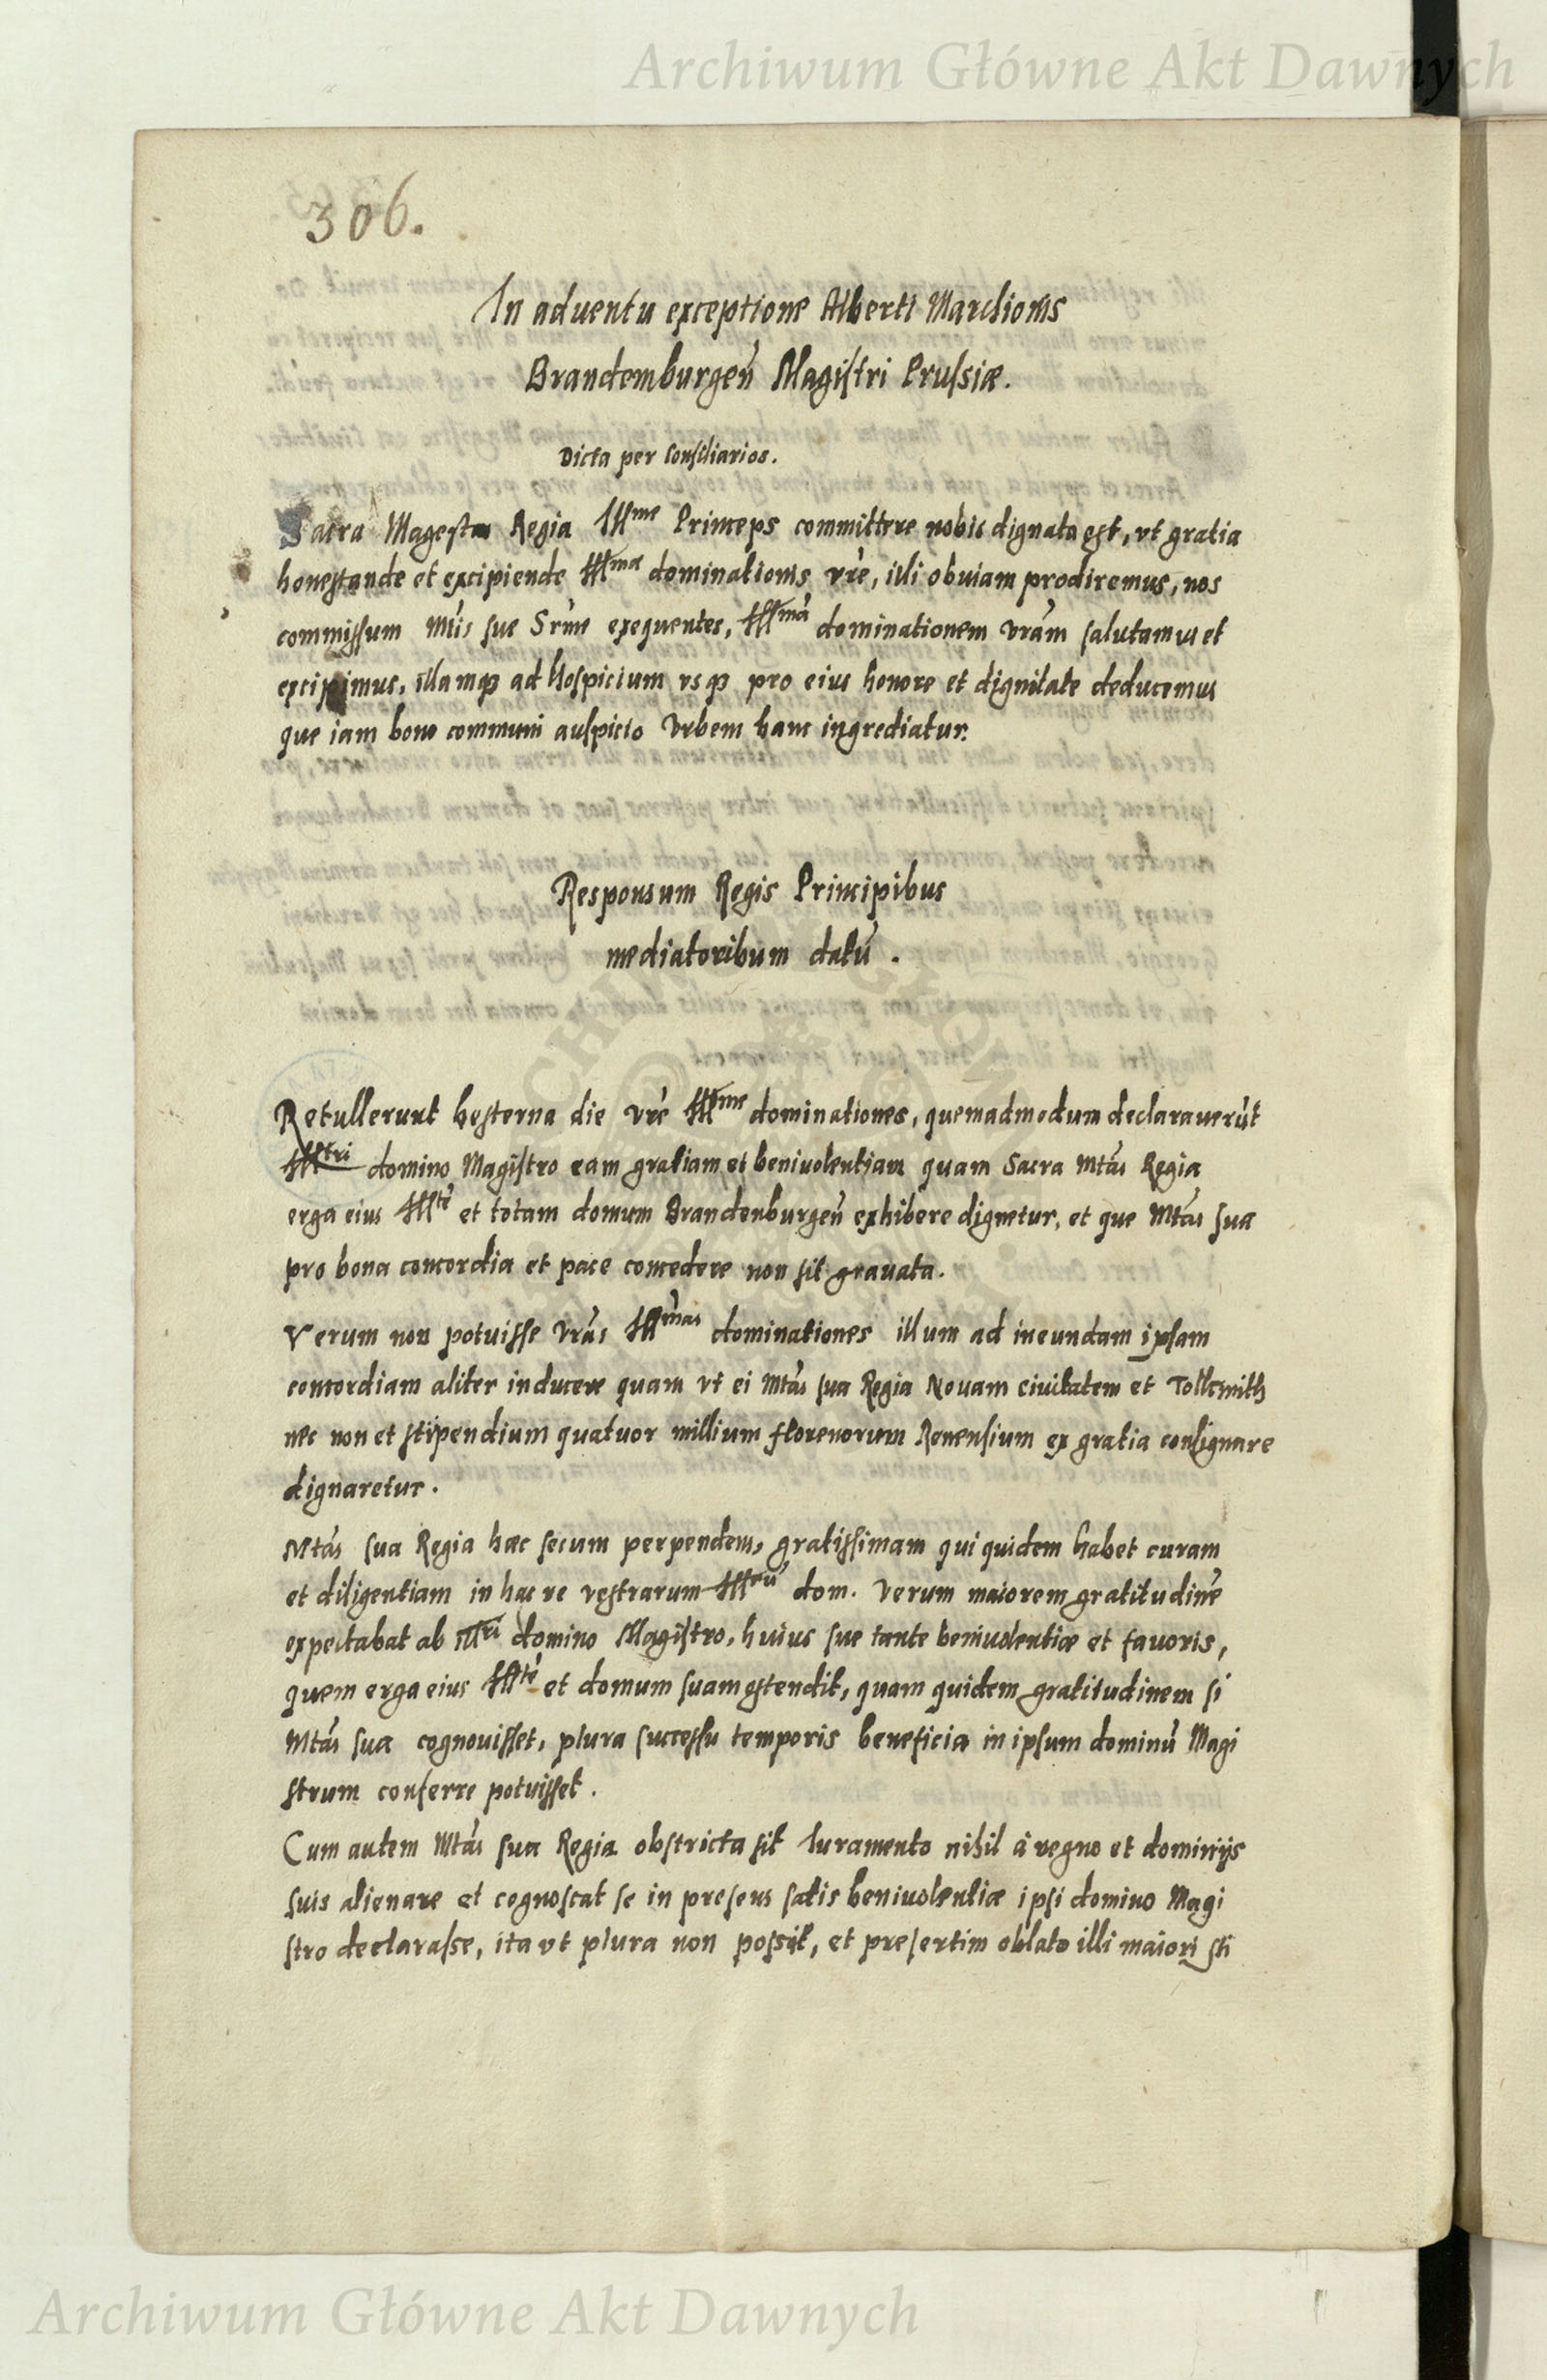 Archiwum Główne Akt Dawnych
306.
In aduentu exceptione Alberti Marchionis
Brandemburgen̄ Magistri Prussiæ.
Dicta per Consiliarios.
Sacra Magestas Regia Illme Princeps committere nobis dignata est, vt gratia
honestande et excipiende Illmæ dominationis vr̄e, illi obuiam prodiremus, nos
commissum Mtis sue Srme exequentes, Illmā dominationem vrām salutamus et
excipimus, illamqȝ ad Hospicium vsqȝ pro eius honore et dignitate deducemus
que iam bono communi auspicio Vrbem hanc ingrediatur.
Responsum Regis Principibus
mediatoribum datū.
Retullerunt hesterna die vr̄e Illme dominationes, quemadmodum declarauerūt
Illtri domino Magistro eam gratiam et beniuolentiam quam Sacra Mtas Regia
erga eius Illtē et totam domum Brandenburgen̄ exhibere dignetur, et que Mtas sua
pro bona concordia et pace concedere non sit grauata.
Verum non potuisse vrās Illmas dominationes illum ad ineundam ipsam
concordiam aliter inducere quam vt ei Mtas sua Regia Nouam ciuitatem et Tollcmith
nec non et stipendium quatuor millium florenorum Renensium ex gratia consignare
dignaretur.
Mtas sua Regia hæc secum perpendens, gratissimam qui quidem habet curam
et diligentiam in hac re vestrarum Illrū dom. Verum maiorem gratitudinē
expectabat ab Illri domino Magistro, huius sue tante beniuolentiæ et fauoris,
quem erga eius Illtē et domum suam ostendit, quam quidem gratitudinem si
Mtas sua cognouisset, plura successu temporis beneficia in ipsum dominū Magi
strum conferre potuisset.
Cum autem Mtas sua Regia obstricta sit Iuramento nihil à regno et dominijs
suis alienare et cognoscat se in presens satis beniuolentiæ ipsi domino Magi
stro declarasse, ita vt plura non possit, et presertim oblato illi maiori sti
Archiwum Główne Akt Dawnych